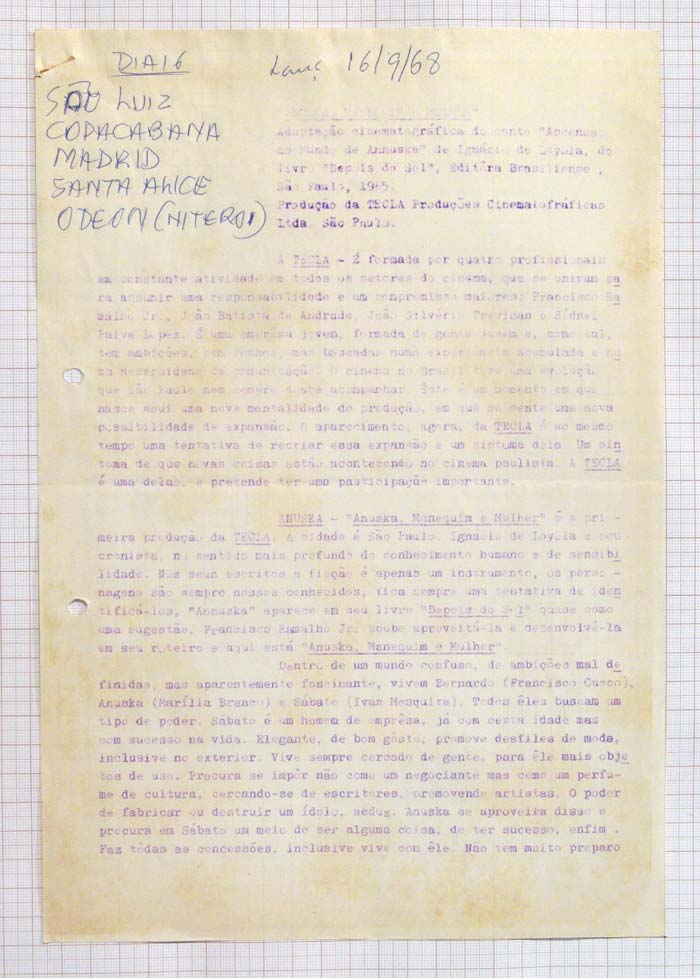 DIA 16
Lanç 16/9/68
SÃO LUIZ
COPACABANA
MADRID
SANTA ALICE
ODEON (NITEROI)
Adaptação cinematográfica do conto "Ascensão
ao Mundo de Annuska" de Ignácio de Loyola, do
livro "Depois do Sol", Editôra Brasiliense ,
São Paulo, 1965.
Produção da TECLA Produções Cinematofráficas
Ltda. São Paulo.
A TECLA - É formada por quatro profissionais
em constante atividade em todos os setores do cinema, que se uniram pa
ra assumir uma responsabilidade e um compromisso maiores: Francisco Ra
malho Jr., João Batista de Andrade, João Silvério Trevisan e Sidnei
Paiva Lopes. É uma emprêsa jovem, formada de gente jovem e, como tal,
tem ambições, tem sonhos, mas baseadas numa experiência acumulada e nu
ma necessidade de comunicação. O cinema no Brasil teve uma evolução
que São Paulo nem sempre soube acompanhar. Êste é um momento em que
nasce aqui uma nova mentalidade de produção, em que se sente uma nova
possibilidade de expansão. O aparecimento, agora, da TECLA é ao mesmo
tempo uma tentativa de recriar essa expansão e um sintoma dela. Um sin
toma de que novas coisas estão acontecendo no cinema paulista. A TECLA
é uma delas, e pretende ter uma participação importante.
ANUSKA - "Anuska, Manequim e Mulher" é a pri -
meira produção da TECLA. A cidade é São Paulo. Ignácio de Loyola o seu
cronista, no sentido mais profundo do conhecimento humano e de sensibi
lidade. Nos seus escritos a ficção é apenas um instrumento, os perso -
nagens são sempre nossos conhecidos, fica sempre uma tentativa de iden
tificá-los, "Annuska" aparece em seu livro "Depois do Sol" quase como
uma sugestão. Francisco Ramalho Jr. soube aproveitá-la e desenvolvê-la
em seu roteiro e aqui está "Anuska, Manequim e Mulher".
Dentro de um mundo confuso, de ambições mal de
finidas, mas aparentemente fascinante, vivem Bernardo (Francisco Cuoco),
Anuska (Marília Branco) e Sábato (Ivan Mesquita). Todos êles buscam um
tipo de poder. Sábato é um homem de emprêsa, já com certa idade mas
com sucesso na vida. Elegante, de bom gôsto, promove desfiles de moda,
inclusive no exterior. Vive sempre cercado de gente, para êle mais obje
tos de uso. Procura se impôr não como um negociante mas como um perfu-
me de cultura, cercando-se de escritores, promovendo artistas. O poder
de fabricar ou destruir um ídolo, seduz. Anuska se aproveita disso e
procura em Sábato um meio de ser alguma coisa, de ter sucesso, enfim .
Faz tôdas as concessões, inclusive vive com êle. Não tem muito preparo